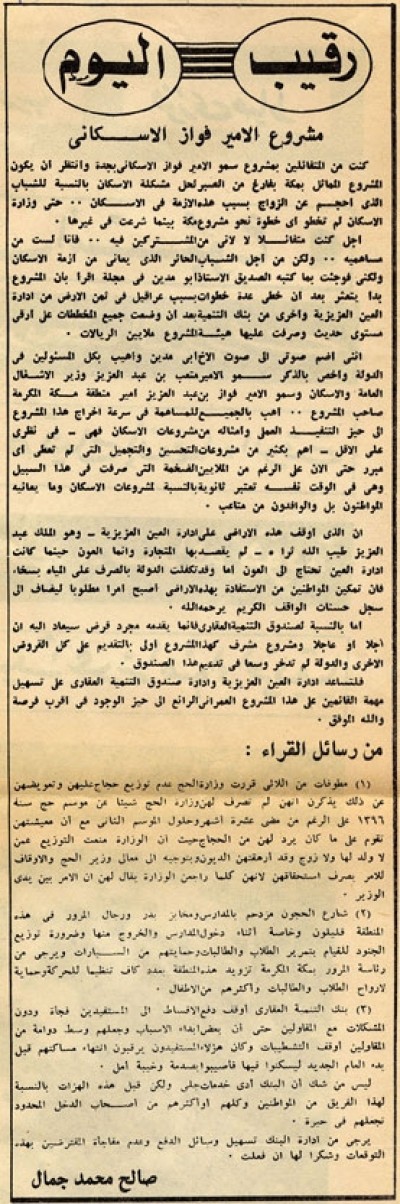 رقيب اليوم
مشروع الامير فواز الاسكانى
كنت من المتفائلين بمشروع سمو الامير فواز الاسكانى بجدة وانتظر ان يكون
المشروع المماثل بمكة بفارغ من الصبر لحل مشكلة الاسكان بالنسبة للشباب
الذى احجم عن الزواج بسبب هذه الازمة فى الاسكان ٠٠ حتى وزارة
الاسكان لم تخطو أى خطوة نحو مشروع مكة بينما شرعت فى غيرها ٠
أجل كنت متفائلا لا لانى من المشتركين فيه ٠٠ فأنا لست من
مساهميه ٠٠ ولكن من أجل الشباب الحائر الذى يعانى من ازمة الاسكان
ولكنى فوجئت بما كتبه الصديق الاستاذ أبو مدين فى مجلة اقرأ بان المشروع
بدأ يتعثر بعد أن خطى عدة خطوات بسبب عراقيل فى ثمن الارض من ادارة
العين العزيزية وأخرى من بنك التنمية بعد ان وضعت جميع المخططات على أرقى
مستوى حديث وصرفت عليها هيئة المشروع ملايين الريالات ٠
اننى اضم صوتى الى صوت الاخ أبى مدين واهيب بكل المسئولين فى
الدولة واخص بالذكر سمو الامير متعب بن عبد العزيز وزير الاشغال
العامة والاسكان وسمو الامير فواز بن عبد العزيز أمير منطقة مكة المكرمة
صاحب المشروع ٠٠ اهب بالجميع للمساهمة فى سرعة اخراج هذا المشروع
الى حيز التنفيذ العملى وأمثاله من مشروعات الاسكان فهى ـ فى نظرى
على الاقل ـ أهم بكثير من مشروعات التحسين والتجميل التى لم تعطى أى
مبرر حتى الان على الرغم من الملايين الضخمة التى صرفت فى هذا السبيل
وهى فى الوقت نفسه تعتبر ثانوية بالنسبة لمشروعات الاسكان وما يعانيه
المواطنون بل والوافدون من متاعب ٠
ان الذى أوقف هذه الاراضى على ادارة العين العزيزية ـ وهو الملك عبد
العزيز طيب الله ثراه ـ لم يقصد بها المتجارة وانما العون حينما كانت
ادارة العين تحتاج الى العون أما وقد تكفلت الدولة بالصرف على المياه بسخاء
فان تمكين المواطنين من الاستفادة بهذه الاراضى أصبح امرا مطلوبا ليضاف الى
سجل حسنات الواقف الكريم يرحمه الله ٠
اما بالنسبة لصندوق التنمية العقارى فانما يقدمه مجرد قرض سيعاد اليه ان
أجلا أو عاجلا ومشروع مشرف كهذا المشروع أولى بالتقديم على كل القروض
الاخرى والدولة لم تدخر وسعا فى تدعيم هذا الصندوق ٠
فلتساعد ادارة العين العزيزية وادارة صندوق التنمية العقارى على تسهيل
مهمة القائمين على هذا المشروع العمرانى الرائع الى حيز الوجود فى أقرب فرصة
والله الموفق ٠
من رسائل القراء :
(١) مطوفات من اللائى قررت وزارة الحج عدم توزيع حجاج عليهن وتعويضهن
عن ذلك يذكرن انهن لم تصرف لهن وزارة الحج شيئا عن موسم حج سنة
١٣٩٦ على الرغم من مضى عشرة أشهر وحلول الموسم الثانى مع أن معيشتهن
تقوم على ما كان يرد لهن من الحجاج حيث أن الوزارة منعت التوزيع عمن
لا ولد لها ولا زوج وقد أرهقتهن الديون بتوجيه الى معالى وزير الحج والاوقاف
للامر بصرف استحقاقهن لانهن كلما راجعن الوزارة يقال لهن ان الامر بين يدى
الوزير ٠
(٢) شارع الحجون مزدحم بالمدارس ومخابز بدر ورجال المرور فى هذه
المنطقة قليلون وخاصة أثناء دخول المدارس والخروج منها وضرورة توزيع
الجنود للقيام بتمرير الطلاب والطالبات وحمايتهم من السيارات ويرجى من
رئاسة المرور بمكة المكرمة تزويد هذه المنطقة بعدد كاف تنظيما للحركة وحماية
لارواح الطلاب والطالبات وأكثرهم من الاطفال ٠
(٣) بنك التنمية العقارى أوقف دفع الاقساط الى المستفيدين فجأة ودون
المشكلات مع المقاولين حتى أن بعض ابداء الاسباب وجعلهم وسط دوامة من
المقاولين أوقف التشطيبات وكان هؤلاء المستفيدون يرقبون انتهاء مساكنهم قبل
بدء العام الجديد ليسكنوا فيها فأصيبوا بصدمة وخيبة أمل ٠
ليس من شك أن البنك أدى خدمات جلى ولكن قبل هذه الهزات بالنسبة
لهذا الفريق من المواطنين وكلهم أو أكثرهم من أصحاب الدخل المحدود
تجعلهم فى حيرة ٠
يرجى من ادارة البنك تسهيل وسائل الدفع وعدم مفاجأة المقترضين بهذه
التوقعات وشكرا لها ان فعلت ٠
صالح محمد جمال